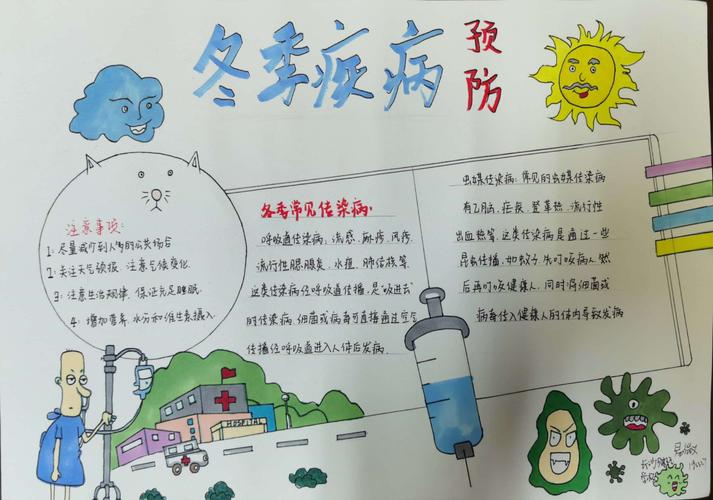 冬季疾病
预防
注意事项:
1: 尽量减少到人多的公共场合
2: 关注天气预报. 注意气候变化.
3: 注意生活规律, 保证充足睡眠.
4: 增加营养. 水分和维生素摄入.
冬季常见传染病:
呼吸道传染病, 流感, 麻疹, 风疹,
流行性腮腺炎, 水痘, 肺结核等.
这类传染病经呼吸道传播, 是"吸进去"
的传染病, 细菌或病毒可直接通过空气
传播经呼吸道进入人体后发病.
虫媒传染病: 常见的虫媒传染病
有乙脑, 疟疾, 登革热, 流行性
出血热等. 这类传染病是通过一些
昆虫传播, 如蚊子, 先叮咬病人, 然
后再叮咬健康人, 同时将细菌或
病毒传入健康人的体内导致发病
HOSPITAL